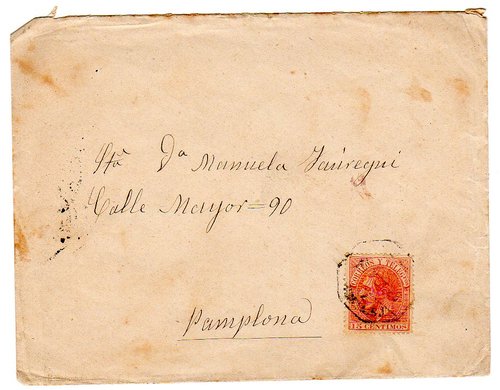 Sta Da Manuela Jaúregui
Calle Mayor = 90
Pamplona
CORREOS Y TELEGFS
15 CENTIMOS